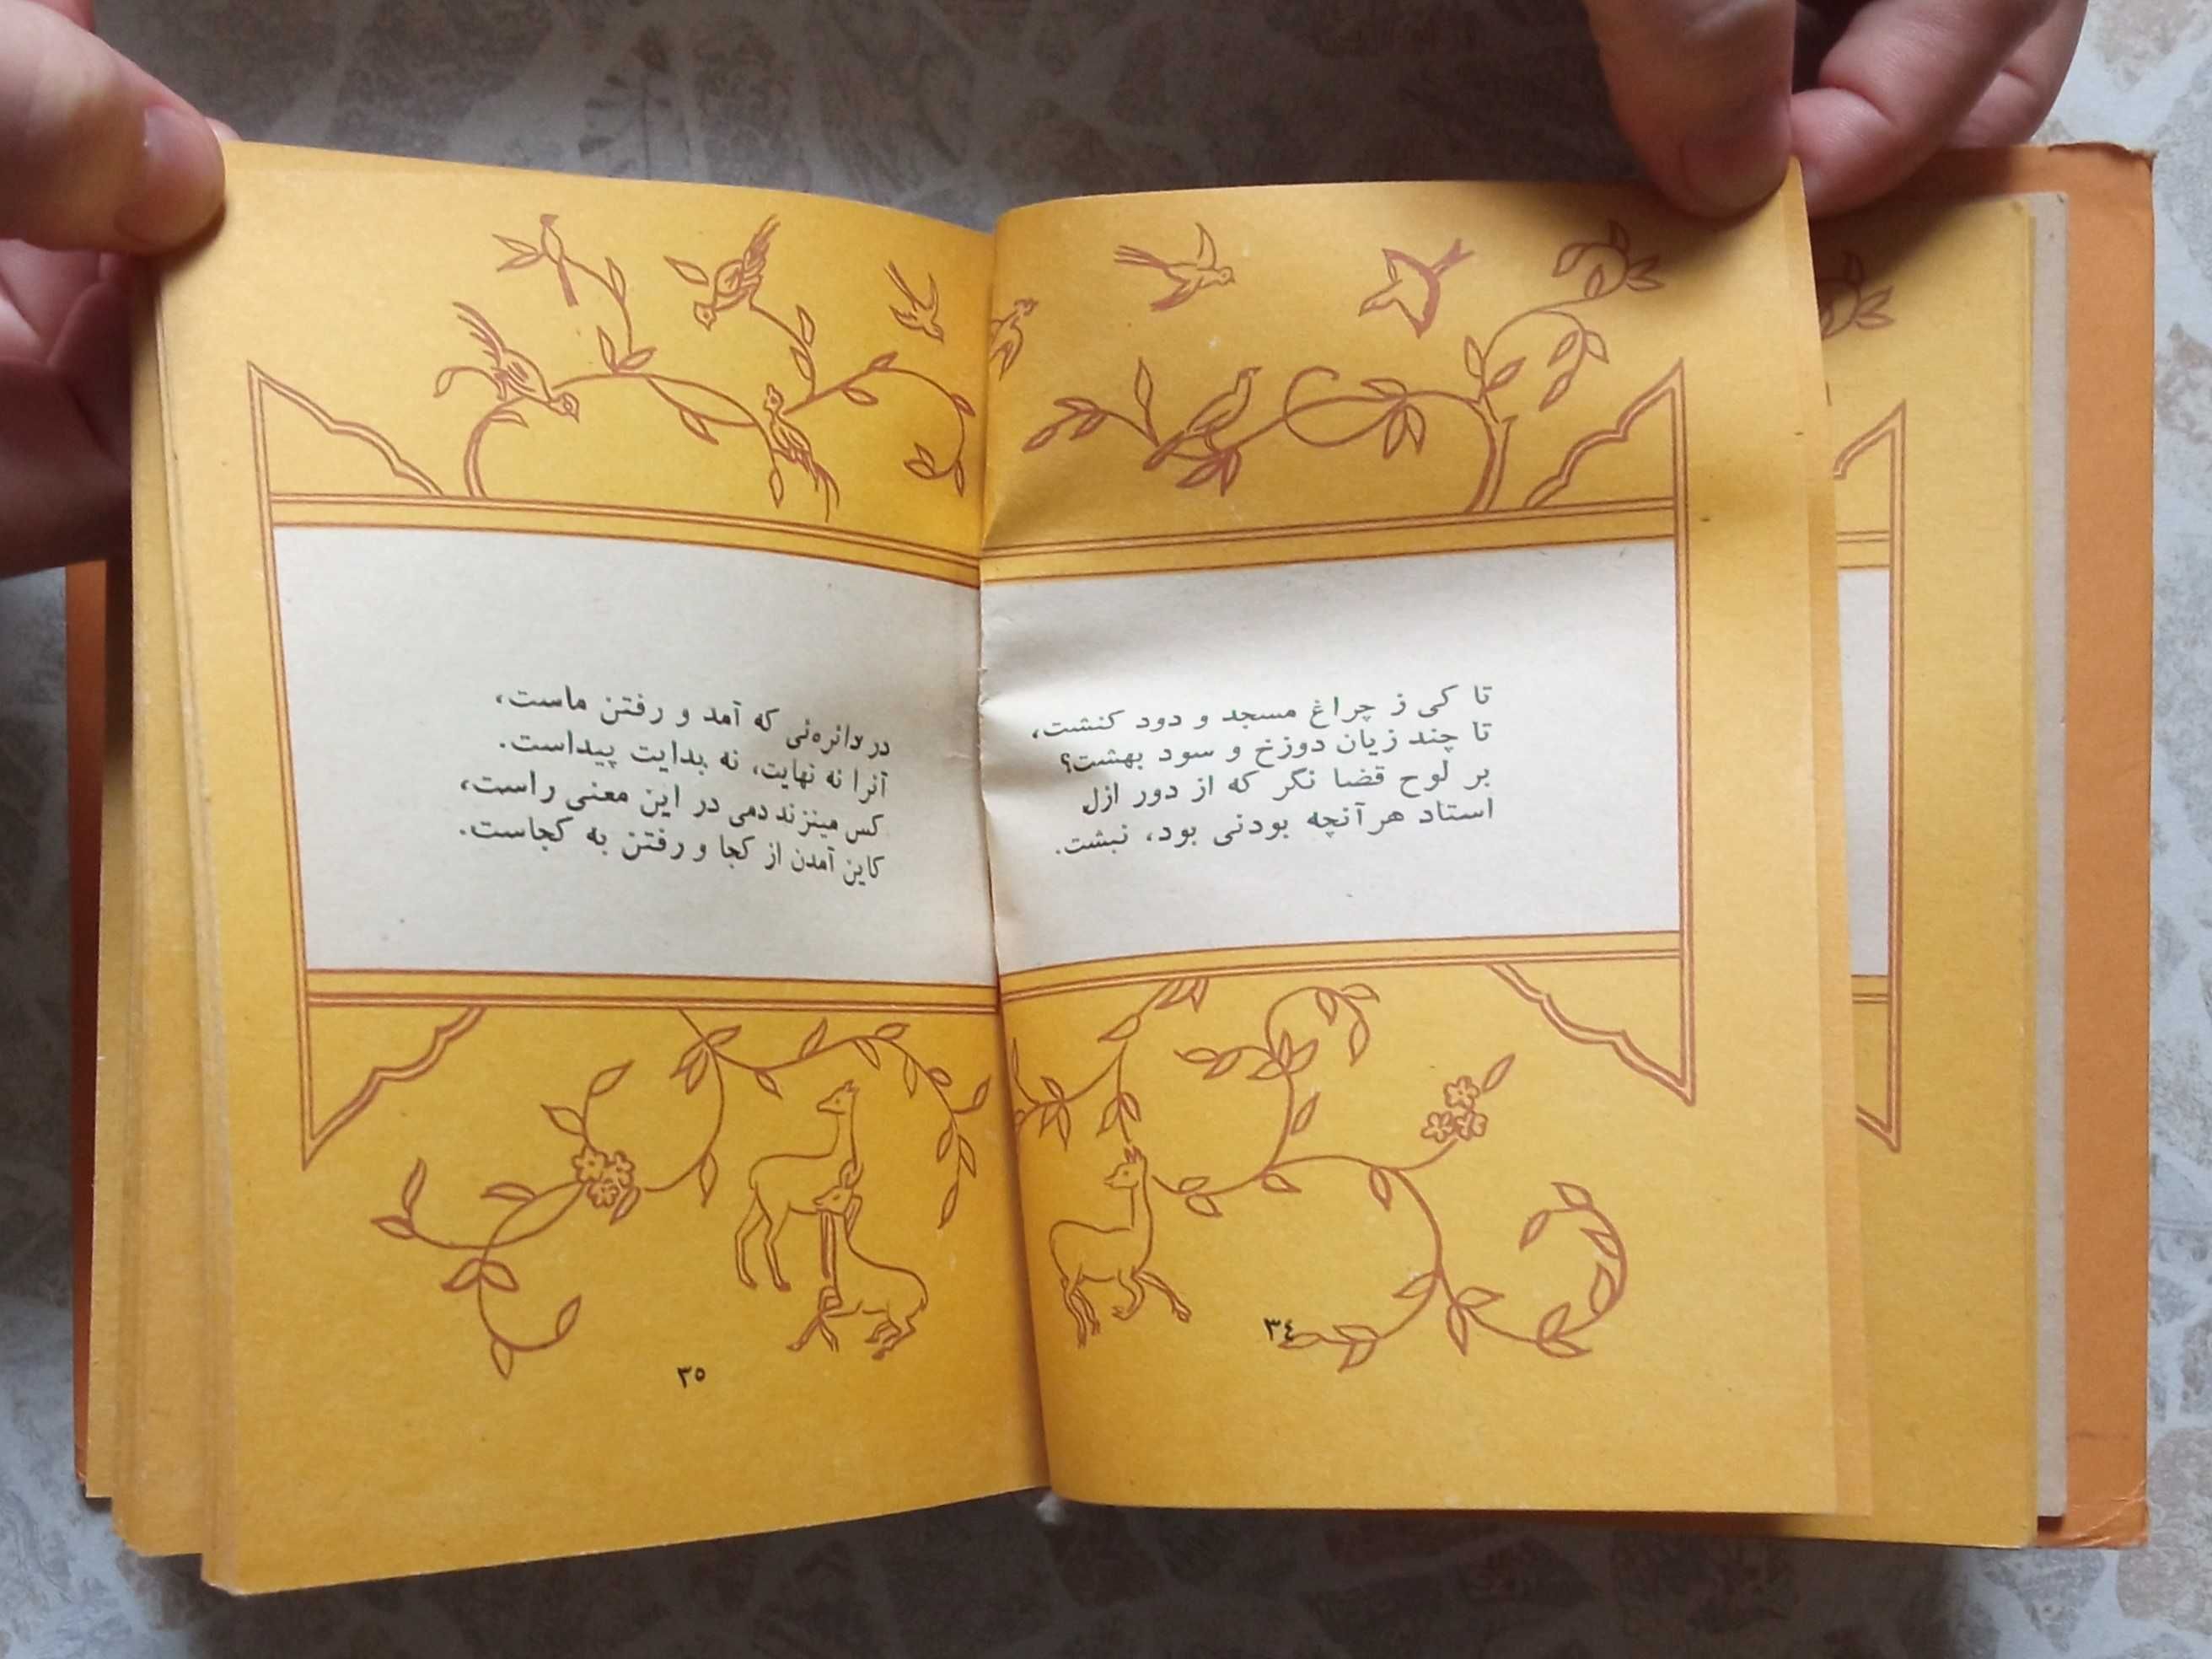 تا کی ز چراغ مسجد و دود کنشت،
تا چند زیان دوزخ و سود بهشت؟
بر لوح قضا نگر که از دور ازل
استاد هرآنچه بودنی بود، نبشت.
۳٤
در دائره‌ئی که آمد و رفتن ماست،
آنرا نه نهایت، نه بدایت پیداست.
کس مینزند دمی در این معنی راست،
کاین آمدن از کجا و رفتن به کجاست.
۳۵